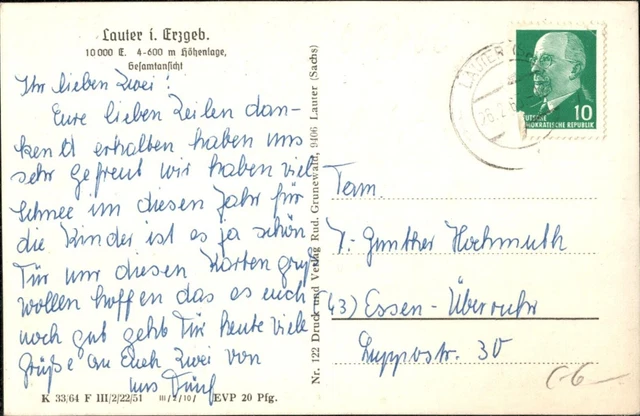 Lauter i. Erzgeb.
10 000 E. 4-600 m Höhenlage,
Gesamtansicht
Ihr lieben Zwei!
Eure lieben Zeilen dan-
kend erhalten haben uns
sehr gefreut wir haben viel
Schnee im diesen Jahr für
die Kinder ist es ja schön
Für nur diesen Kartengruß
wollen hoffen das es euch
noch gut geht Für heute viele
Grüße an Euch Zwei von
uns Fünf
K 33/64 F III/2/22/51 III/2/10/ EVP 20 Pfg.
Nr. 122 Druck und Verlag Rud. Grunewald, 9406 Lauter (Sachs)
LAUTER
26.2.6
10
DEUTSCHE
DEMOKRATISCHE REPUBLIK
Fam.
Günther Hochmuth
(43) Essen-Überruhr
30